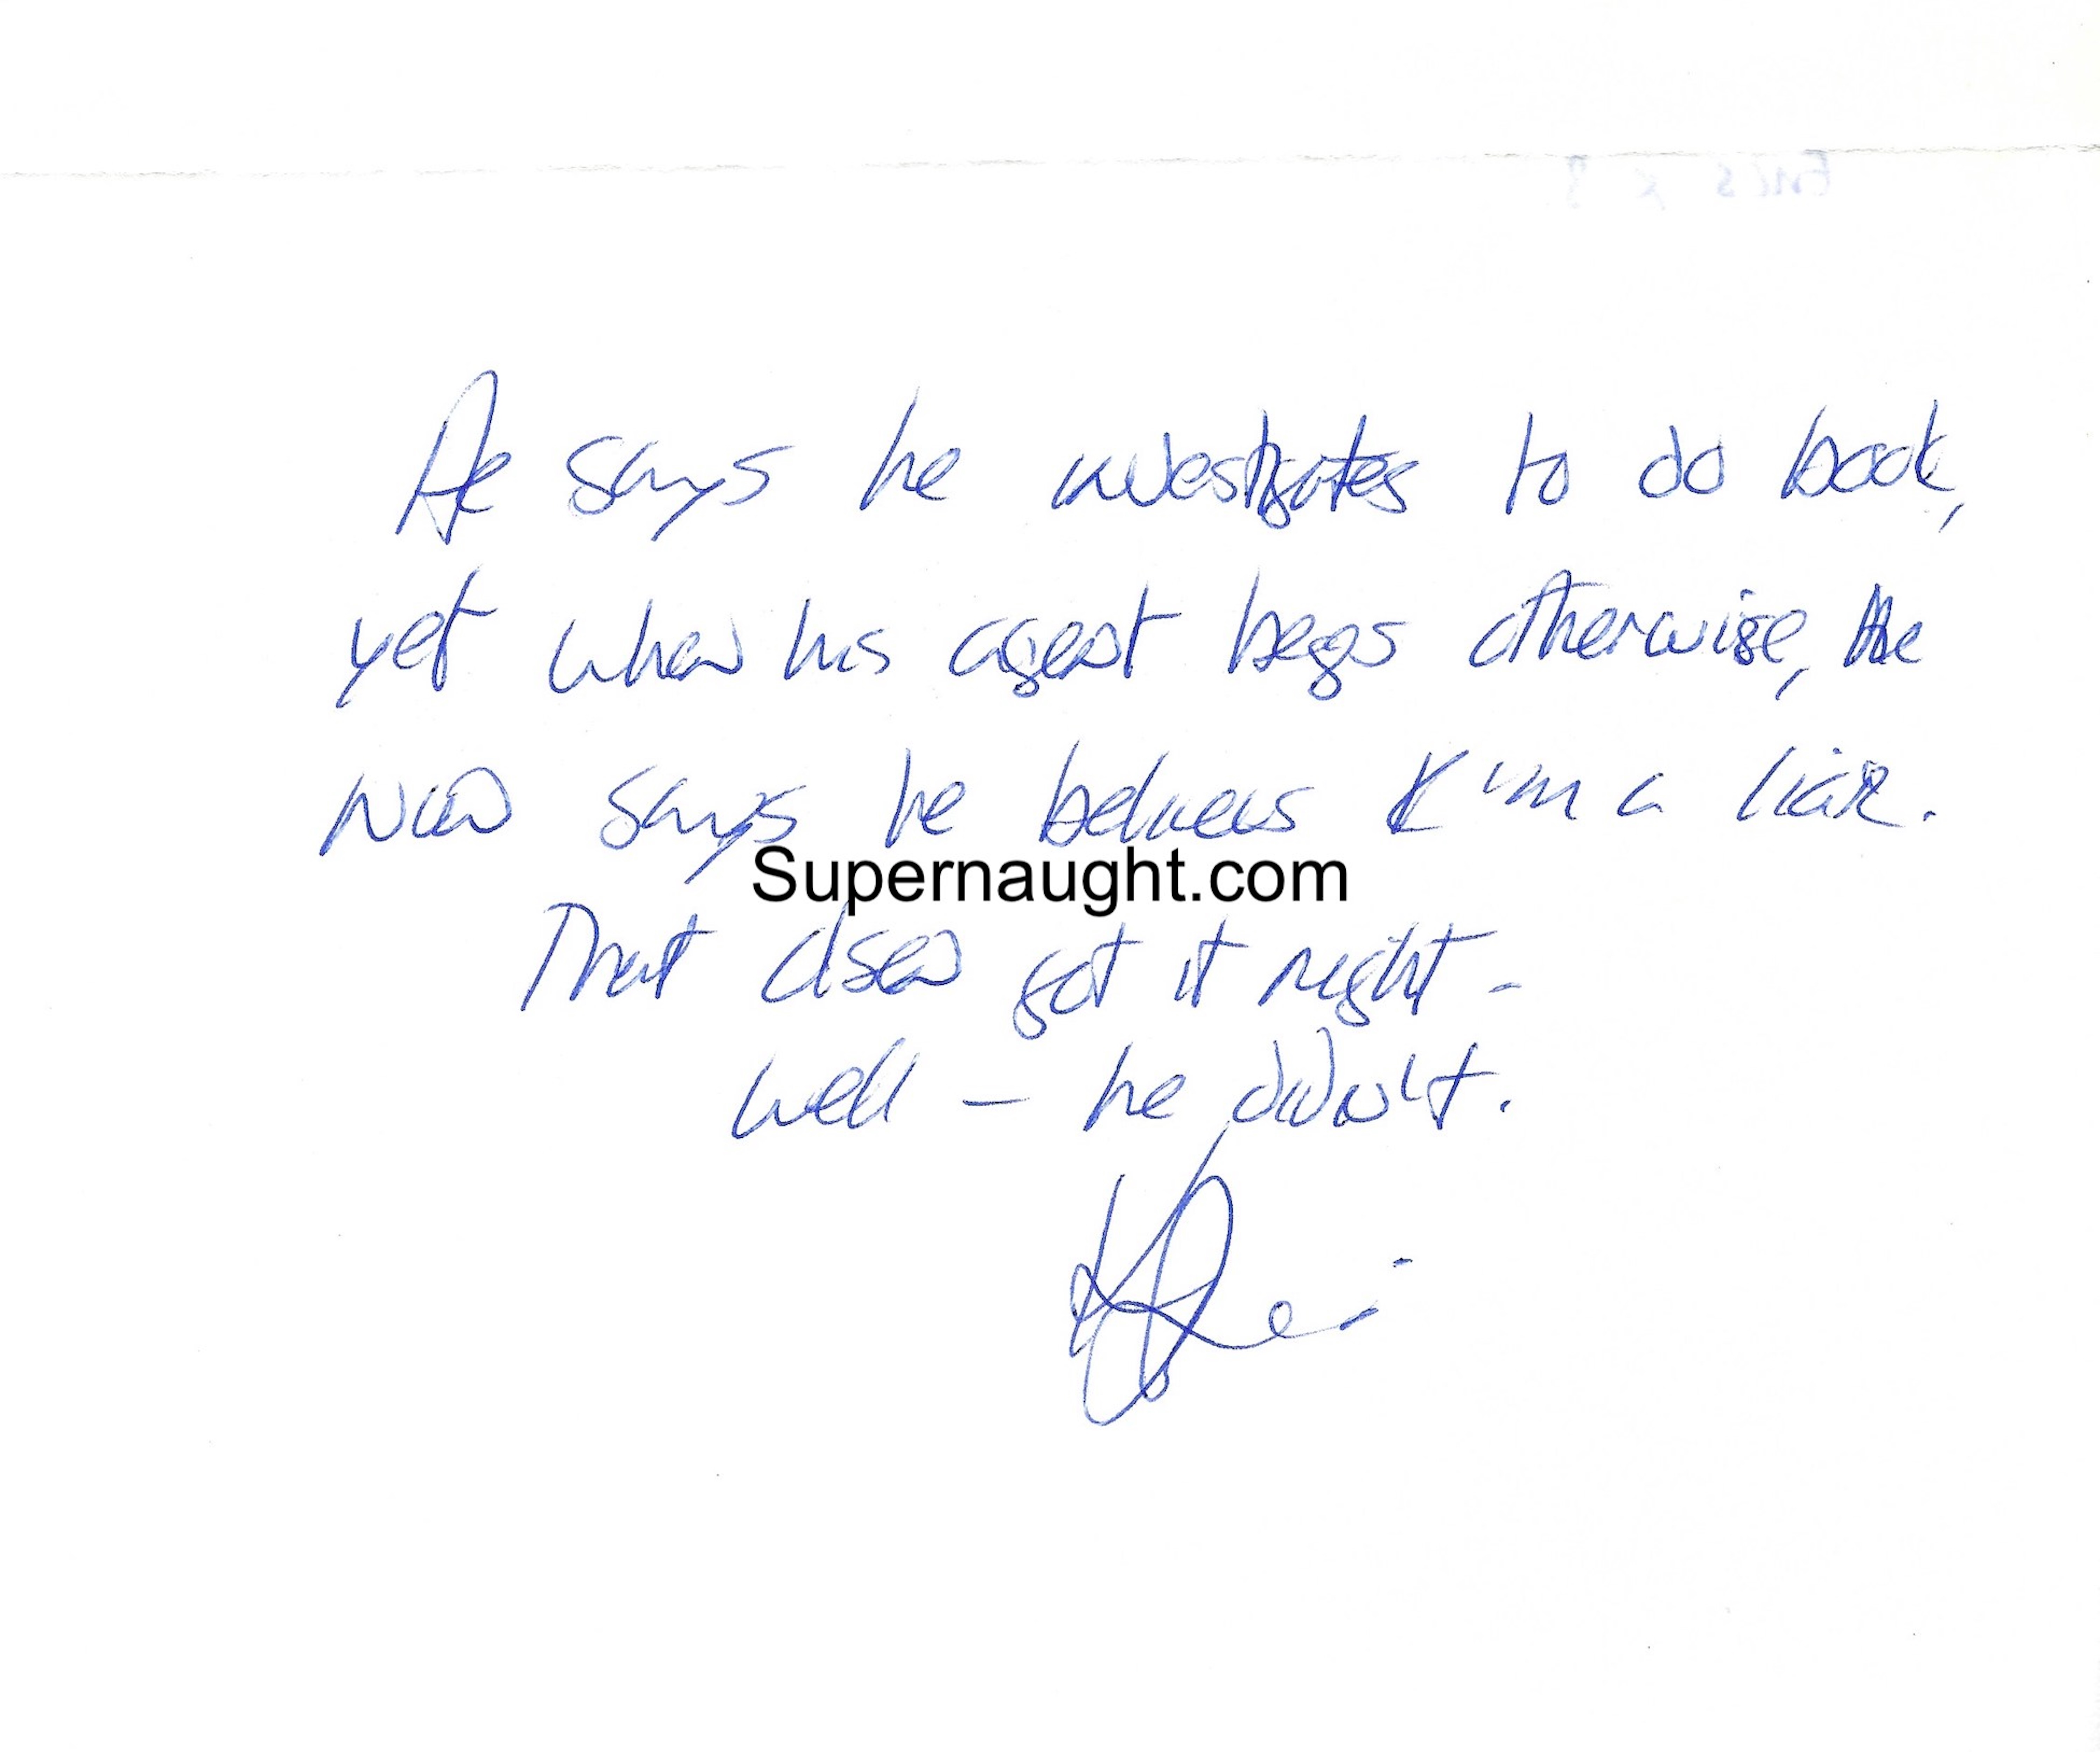 Encs x 3
He says he investigates to do book,
yet when his agent begs otherwise, he
now says he believes I'm a liar.
Supernaught.com
That Olsen got it right -
well - he didn't.